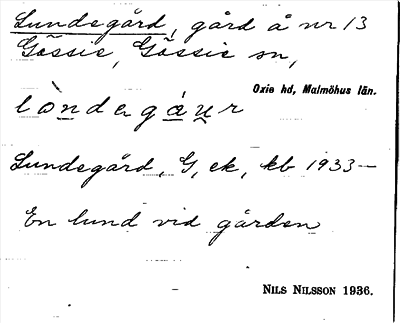 Lundegård, gård å nr 13
Gässie, Gässie sn,
Oxie hd, Malmöhus län.
lòndagáur
Lundegård, G, ek, kb 1933—
En lund vid gården
NILS NILSSON 1936.